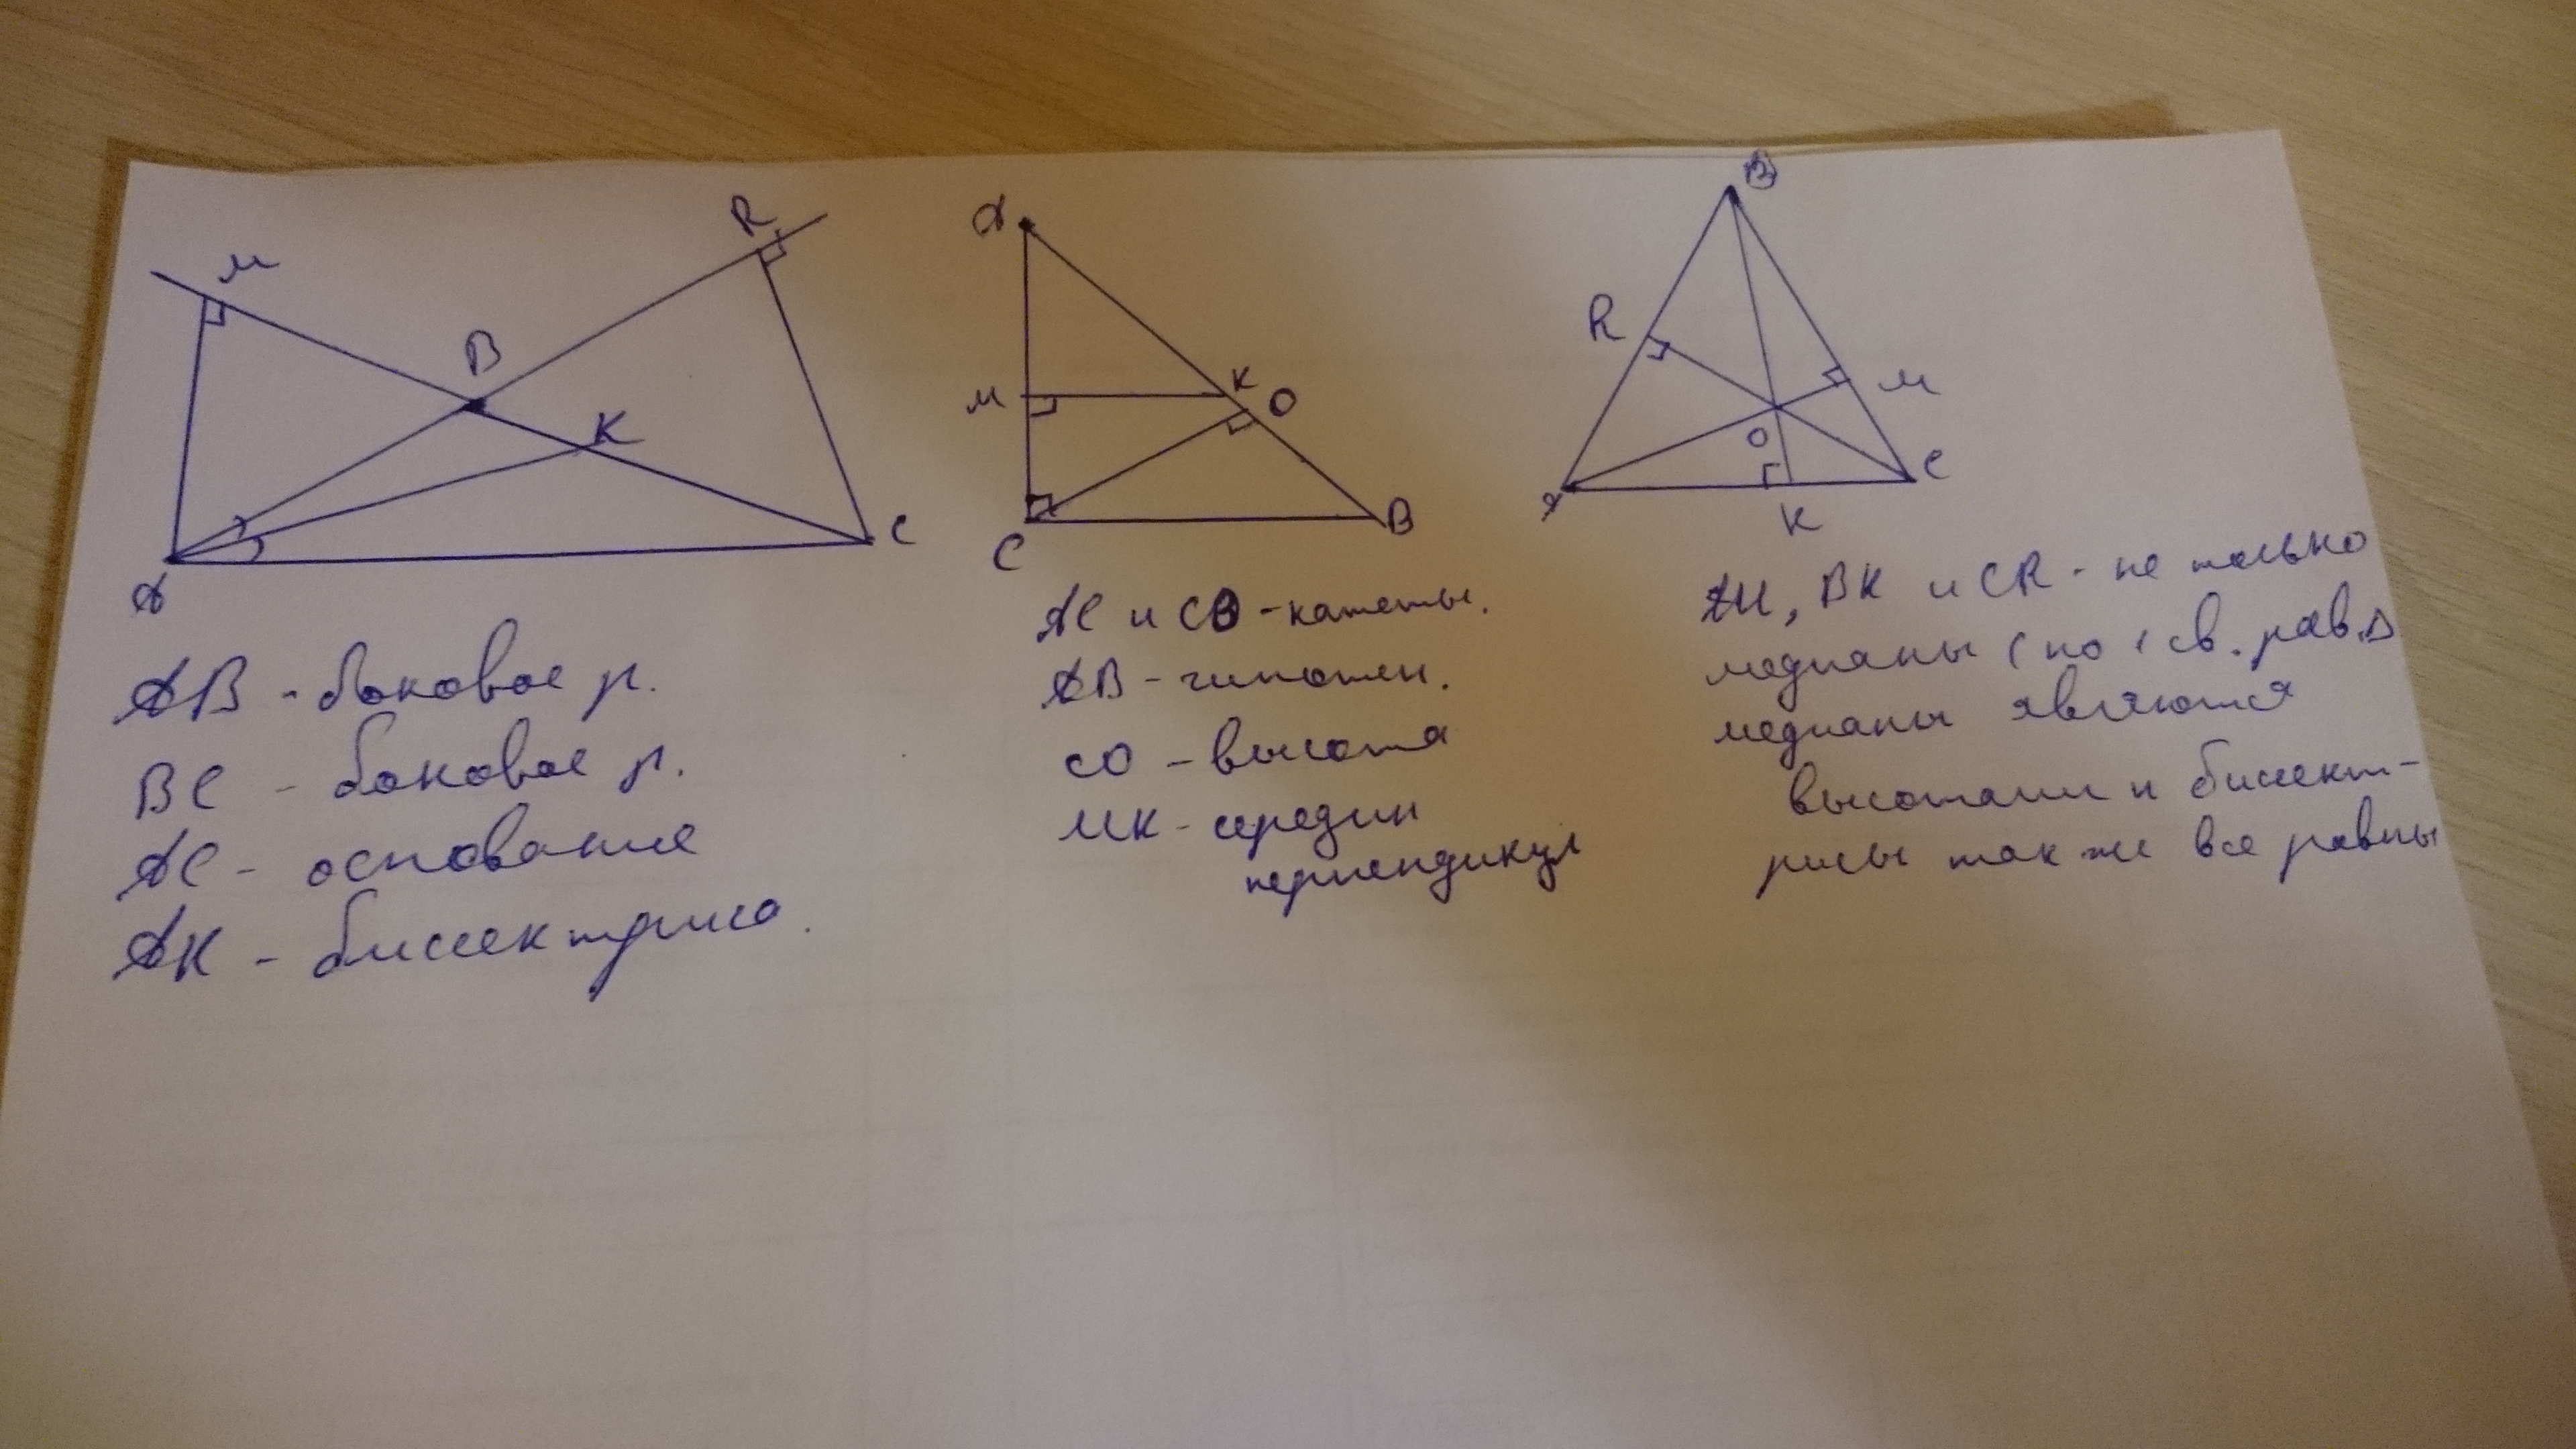 М
R
B
K
A
C
AB - боковое р.
BC - боковое р.
AC - основание
AK - биссектриса.
A
M
K
O
C
B
AC и CB - катеты.
AB - гипотен.
CO - высота
MK - середин
перпендикул
B
R
M
O
A
C
K
AM, BK и CR - не только
медианы (по 1 св. рав. Δ
медианы являются
высотами и биссект-
рисы так же все равны